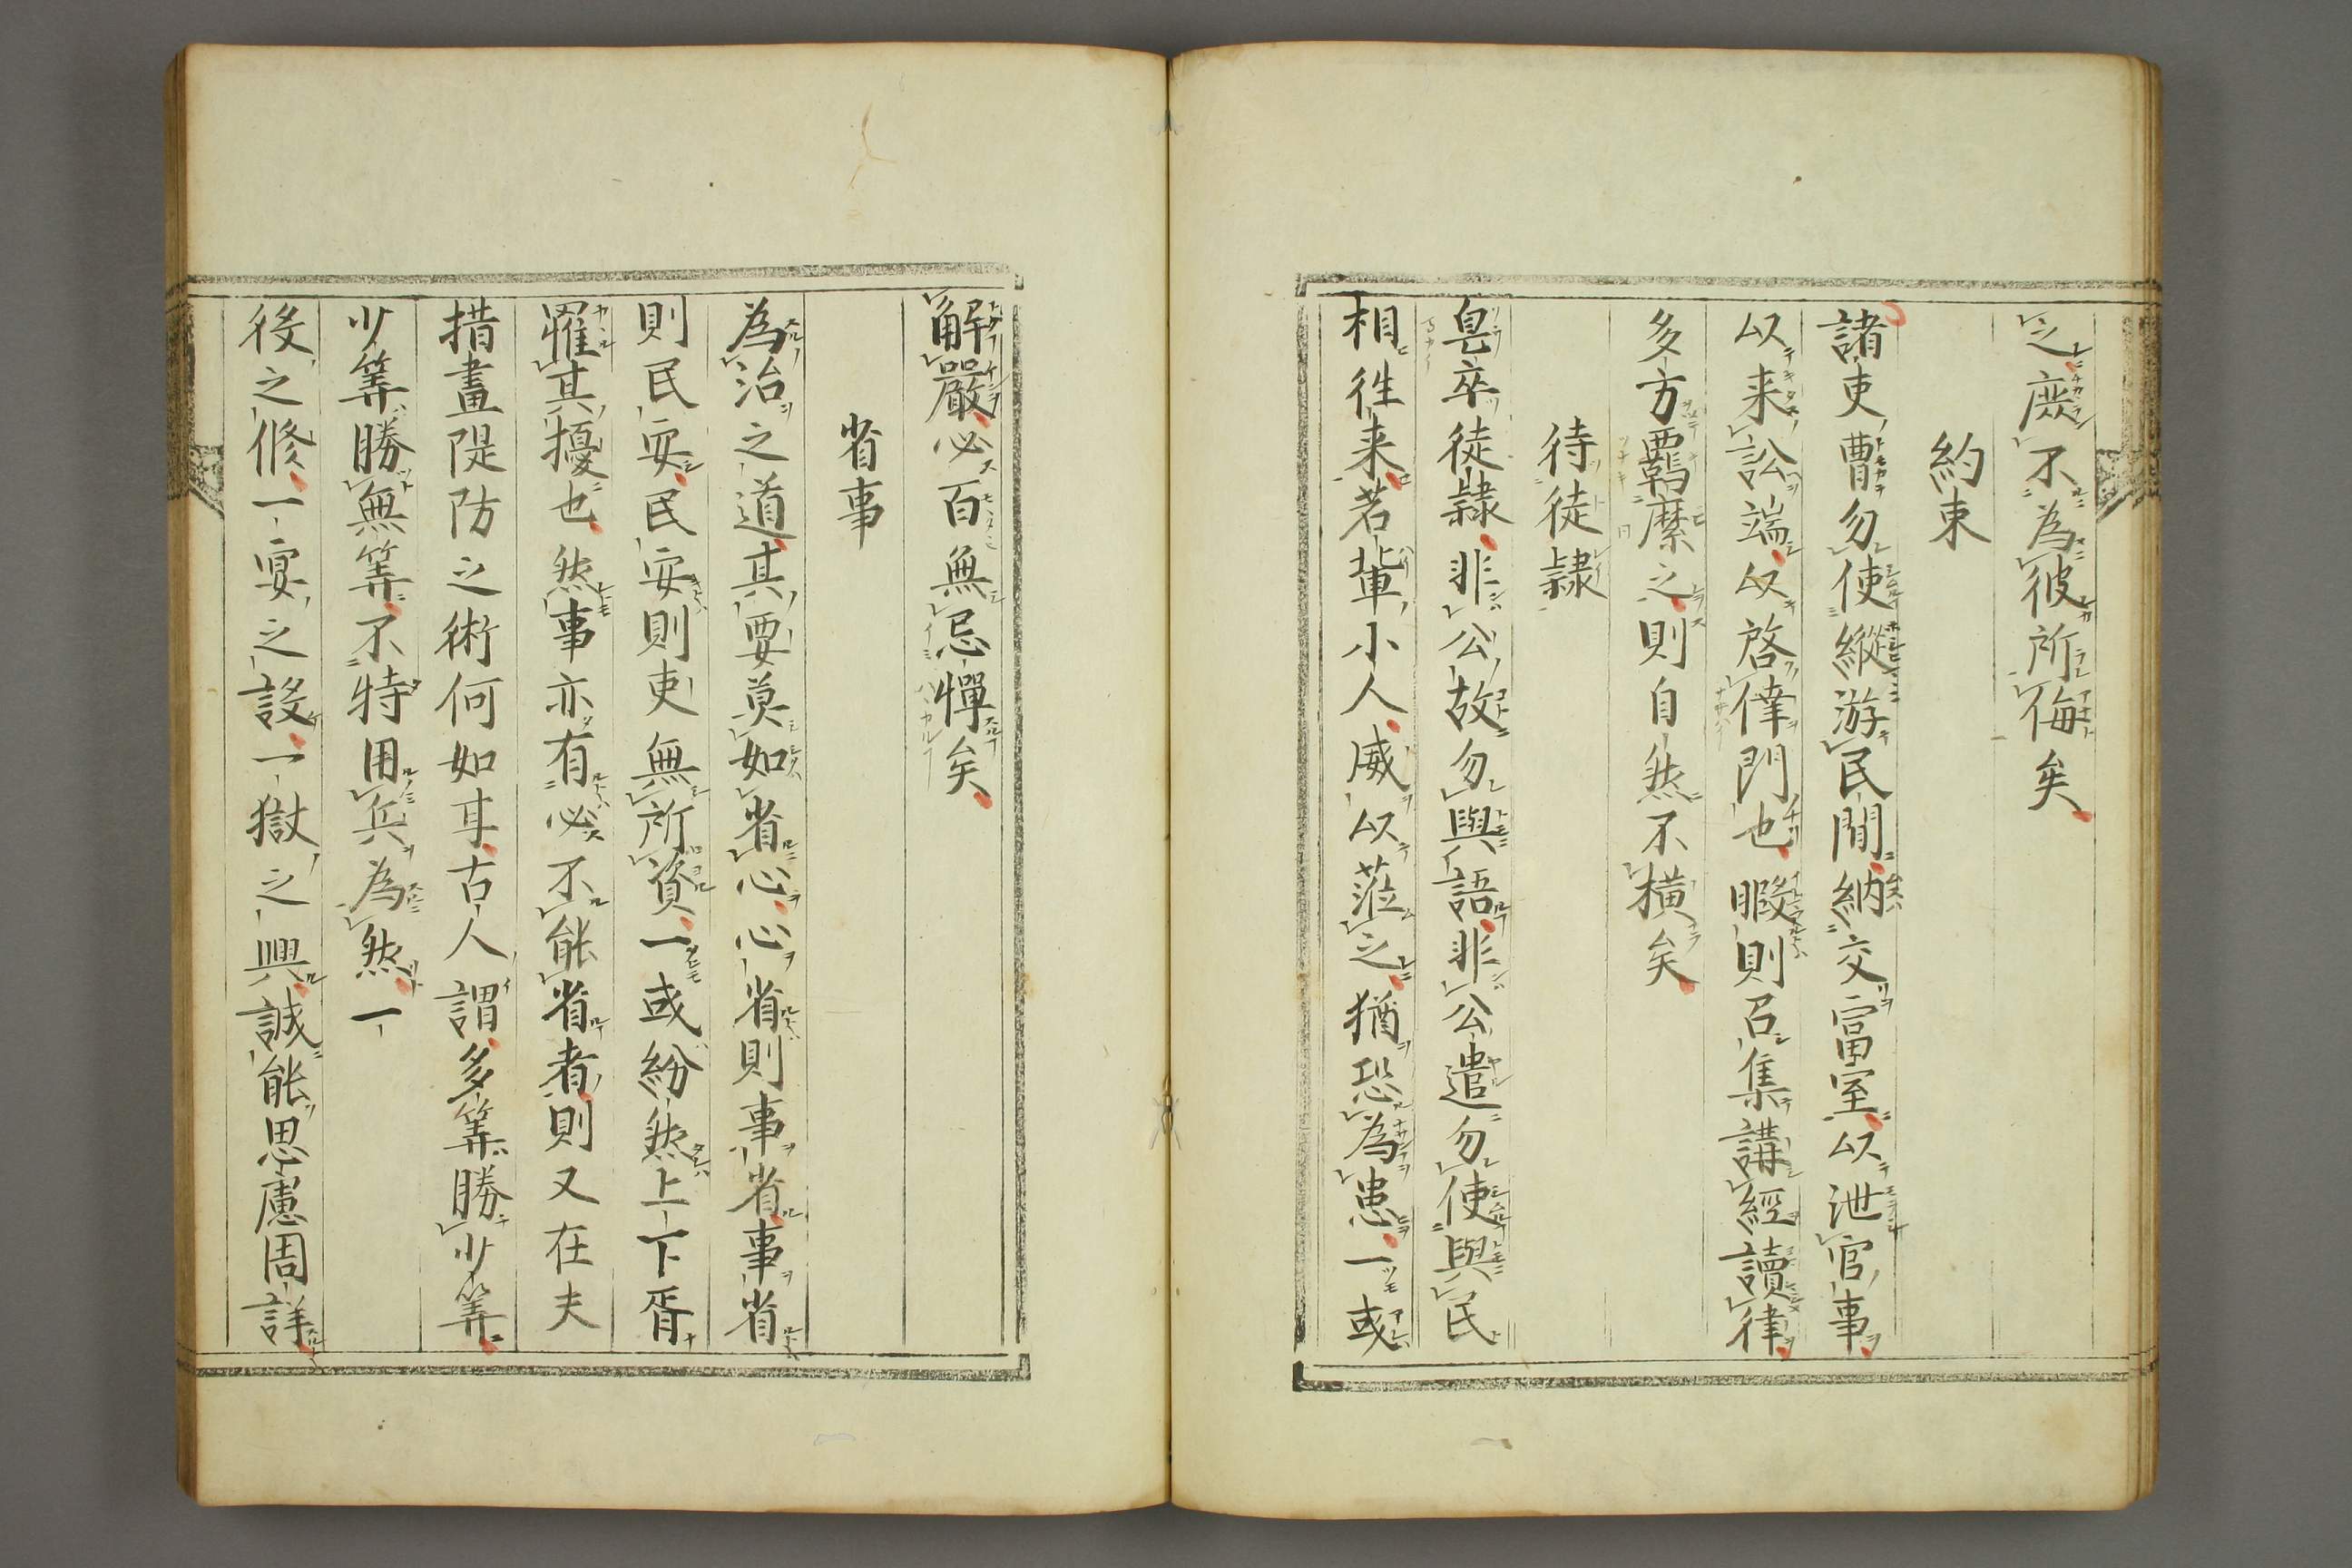 之庶不為彼所侮矣
約束
諸吏曹勿使縱游民間納交富室以泄官事
以来訟端以啓倖門也暇則召集講經讀律
多方羇縻之則自然不横矣
待徒隷
皂卒徒隷非公故勿與語非公遣勿使與民
相徃来若輩小人威以蒞之猶恐為患一或
解嚴必百無忌憚矣
省事
為治之道其要莫如省心心省則事省事省
則民安民安則吏無所資一或紛然上下胥
罹其擾也然事亦有必不能省者則又在夫
措畫隄防之術何如耳古人謂多筭勝少筭
少筭勝無筭不特用兵為然一
役之修一宴之設一獄之興誠能思慮周詳